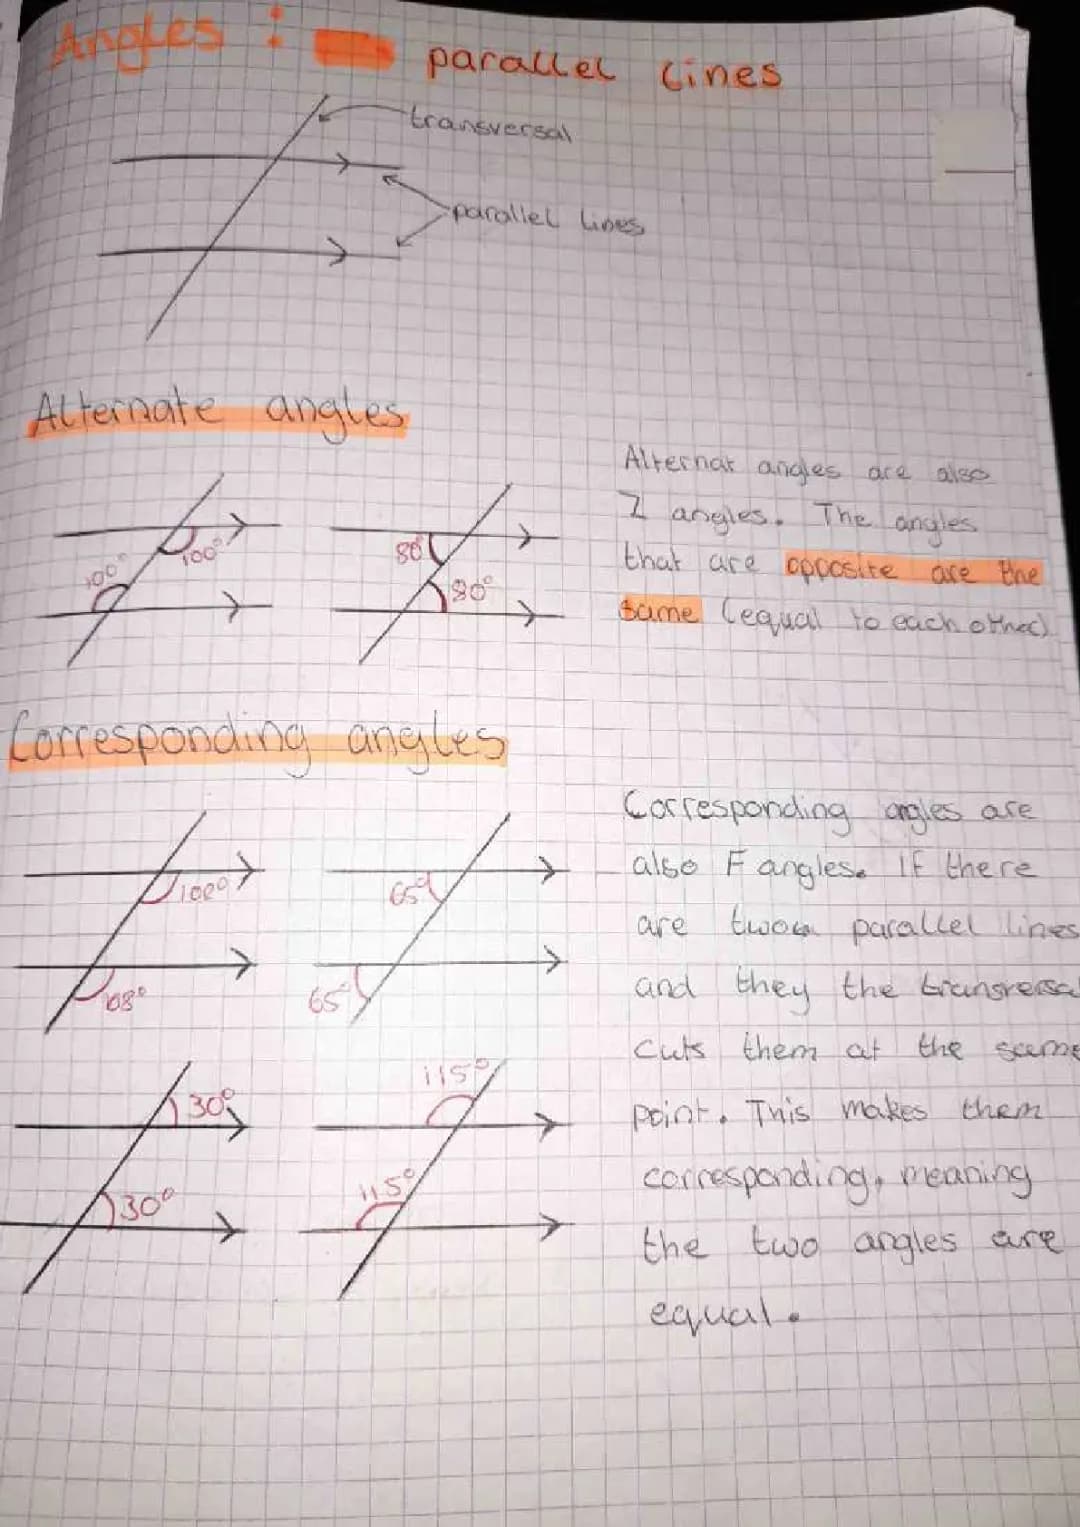 Angles : parallel lines
transversal
parallel lines
Alternate angles
Alternat angles are also
Z angles. The angles
that are opposite are the
same (equal to each other)
100° 100°
80° 80°
Corresponding angles
Corresponding angles are
also F angles. If there
are two parallel lines
and they the transversal
cuts them at the same
point. This makes them
corresponding, meaning
the two angles are
equal.
65°
65°
30°
30°
115°
115°